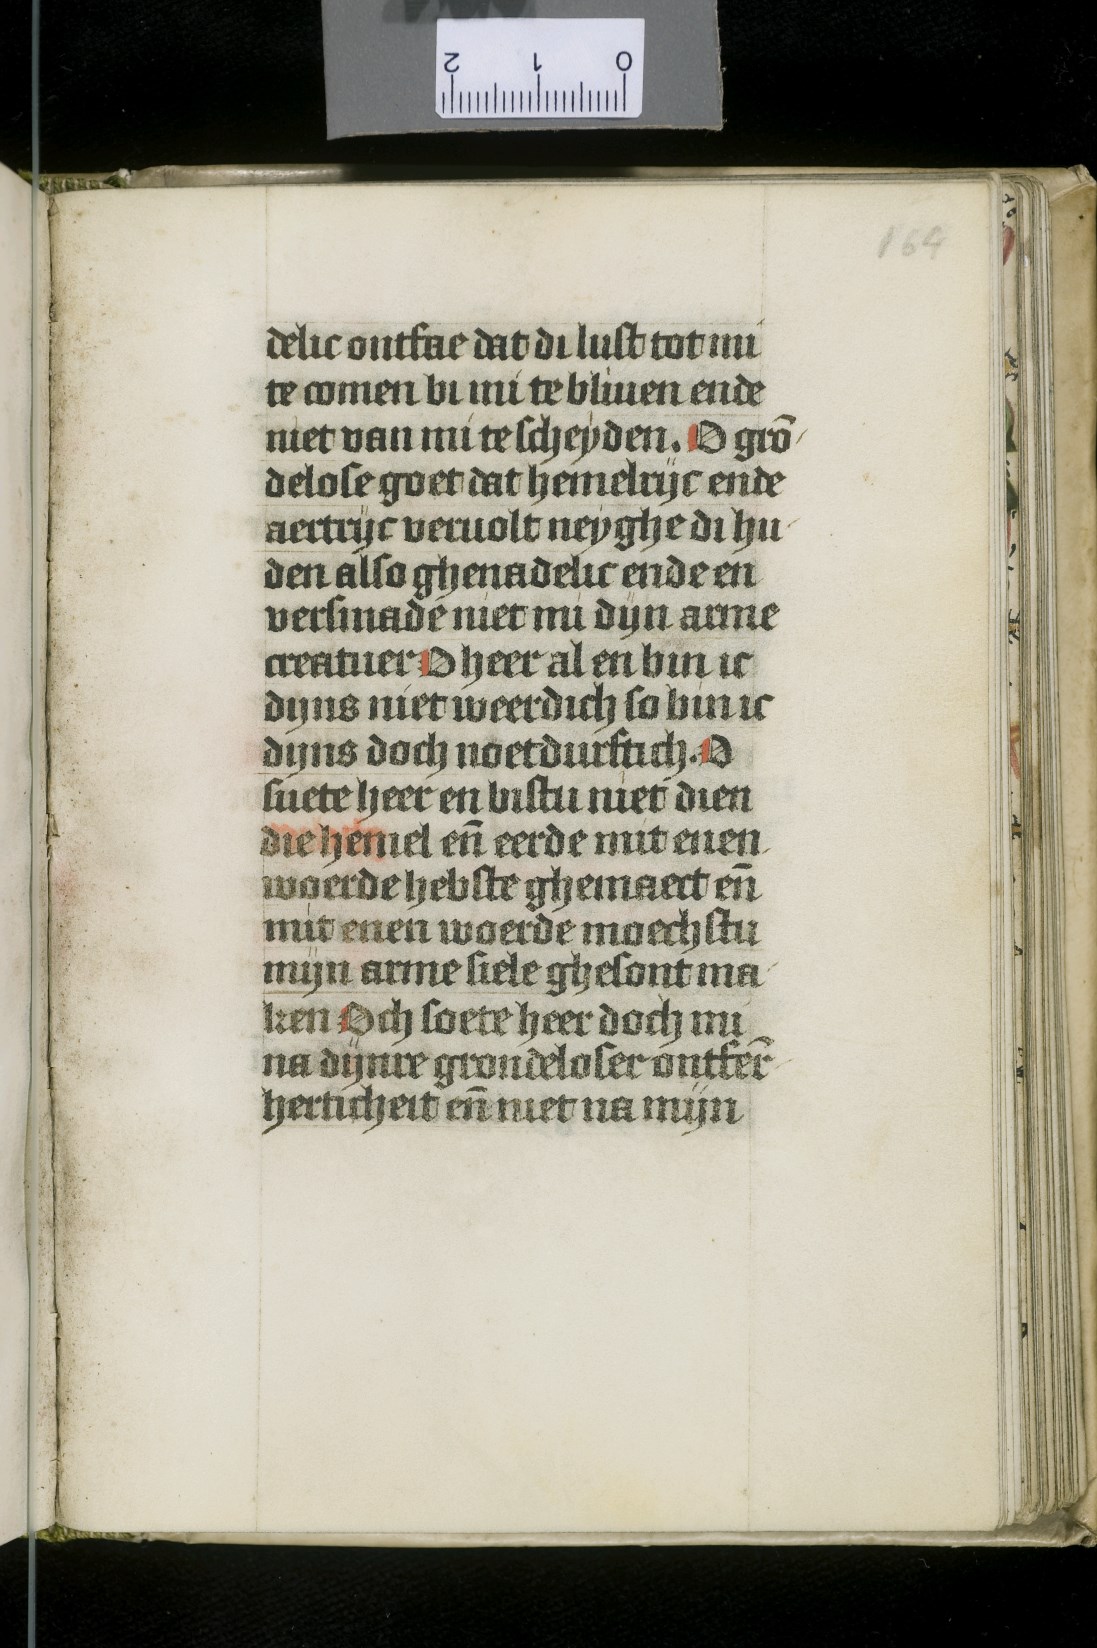 164
delic ontfae dat di lust tot mi
te comen bi mi te bliuen ende
niet van mi te scheyden. O grō-
delose goet dat hemelrijc ende
aertrijc veruolt neyghe di hu-
den also ghenadelic ende en
versmade niet mi dijn arme
creatuer O heer al en bin ic
dijns niet weerdich so bin ic
dijns doch noetdurftich. O
suete heer en bistu niet dien
die hemel en̄ eerde mit enen
woerde hebste ghemaect en̄
mit enen woerde moechstu
mijn arme siele ghesont ma-
ken Och soete heer doch mi
na dijnre grondeloser ontfer̄-
herticheit en̄ niet na mijn
0 1 2